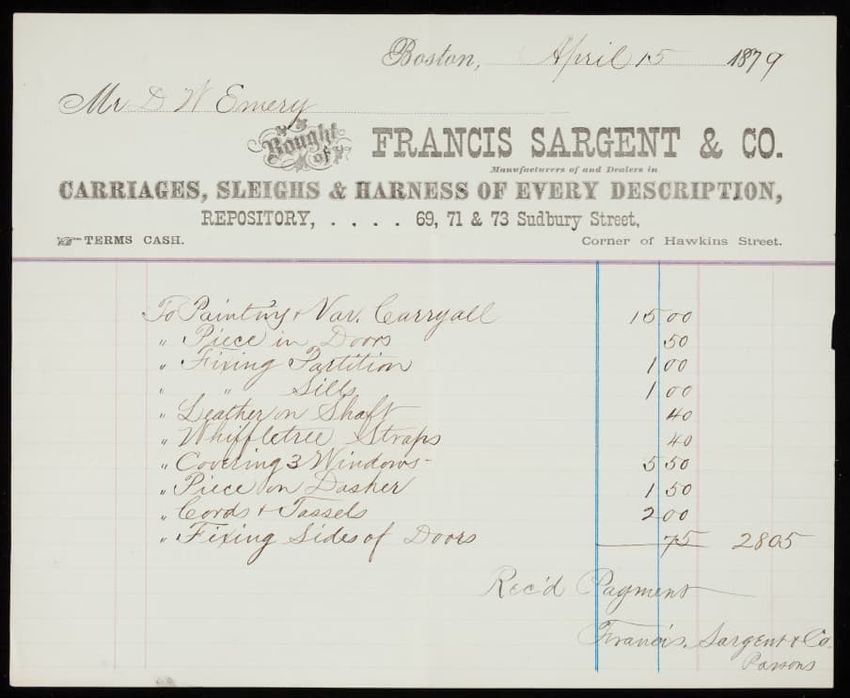 Boston, April 15 1879
Mr D W Emery
Bought of FRANCIS SARGENT & CO.
Manufacturers of and Dealers in
CARRIAGES, SLEIGHS & HARNESS OF EVERY DESCRIPTION,
REPOSITORY, . . . . 69, 71 & 73 Sudbury Street,
TERMS CASH. Corner of Hawkins Street.
To Painting & Var. Carryall 15 00
" Piece in Doors 50
" Fixing Partition 1 00
" " Sills 1 00
" Leather on Shaft 40
" Whiffletree Straps 40
" Covering 3 Windows 5 50
" Piece on Dasher 1 50
" Cords & Tassels 2 00
" Fixing Sides of Doors 75 2805
Rec'd Payment
Francis. Sargent & Co.
Parsons